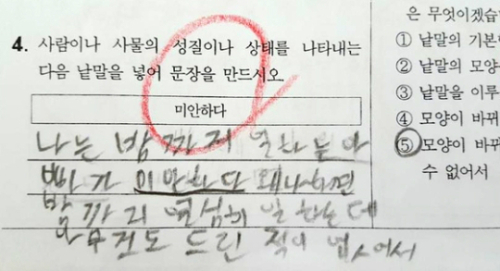 4. 사람이나 사물의 성질이나 상태를 나타내는
다음 낱말을 넣어 문장을 만드시오
미안하다
나는 밤까지 일하는 아
빠가 미안하다 왜냐하면
밤까지 열심히 일하는데
아무것도 드린 적이 없어서
은 무엇이겠습
① 낱말의 기본
② 낱말의 모양
③ 낱말을 이루
④ 모양이 바뀌
⑤ 모양이 바뀌
수 없어서